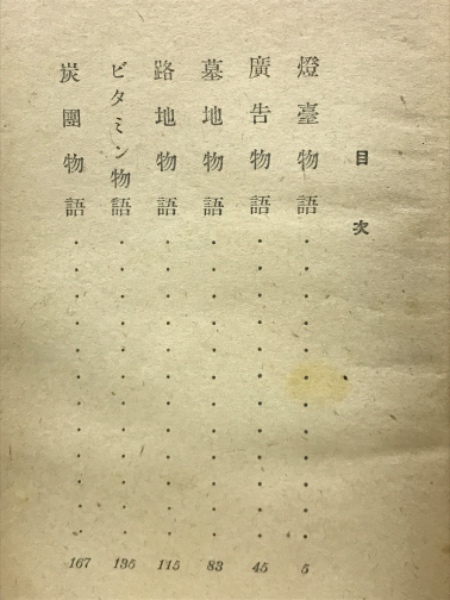 目次
燈臺物語 5
廣告物語 45
墓地物語 83
路地物語 115
ビタミン物語 135
炭團物語 167